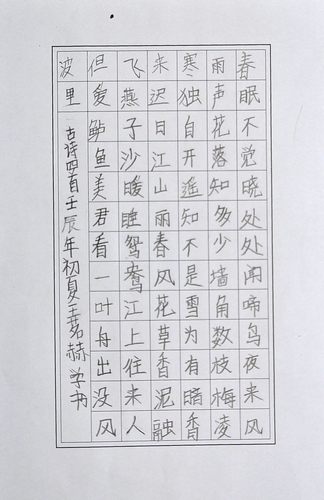 春眠不觉晓处处闻啼鸟夜来风
雨声花落知多少墙角数枝梅凌
寒独自开遥知不是雪为有暗香
来迟日江山丽春风花草香泥融
飞燕子沙暖睡鸳鸯江上往来人
但爱鲈鱼美君看一叶舟出没风
波里 古诗四首壬辰年初夏王茗赫学书